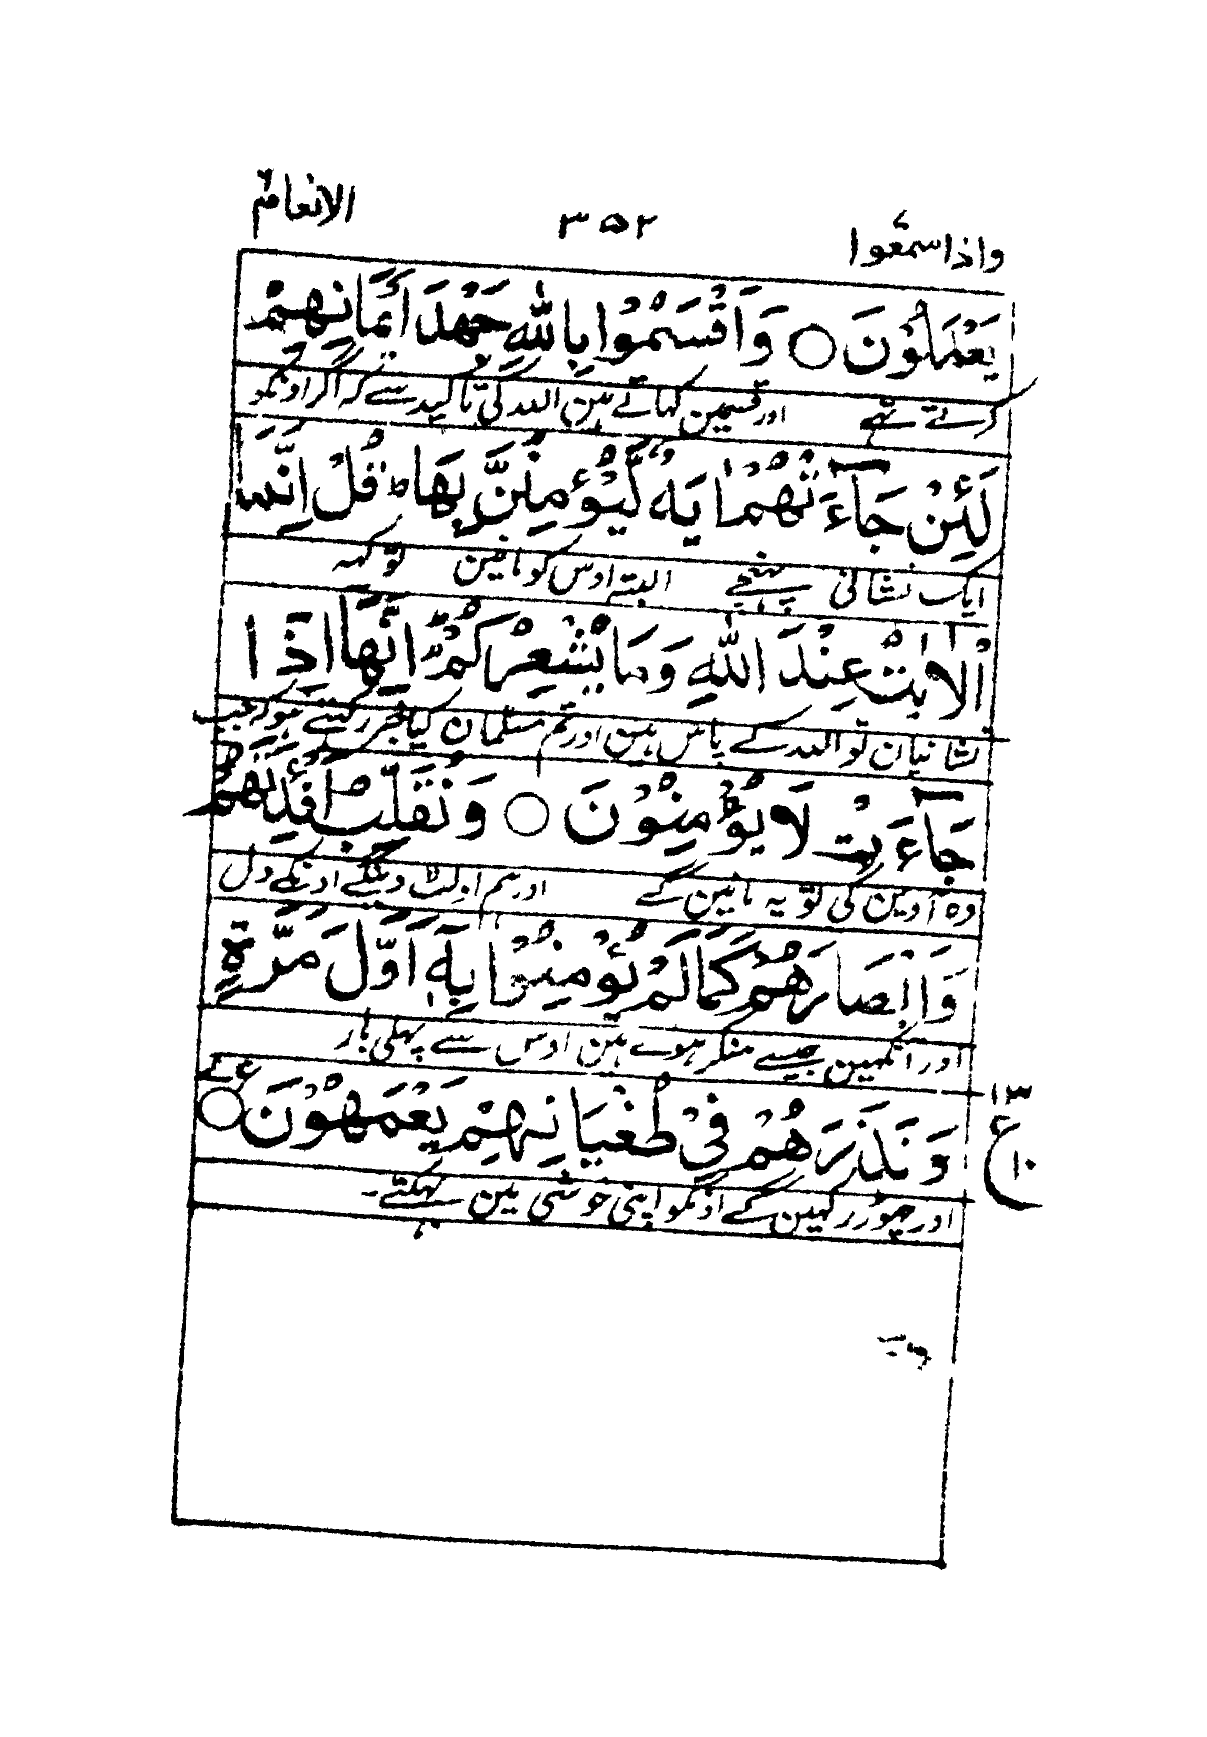 واذا سمعوا ۷ ۳۵۲ الانعام ۶
يَعْمَلُوْنَ ○ وَاَقْسَمُوْا بِاللّٰهِ جَهْدَ اَيْمَانِهِمْ
کرتے تھے اور قسمین کھاتے ہین اللہ کی تاکید سے کہ اگر اونکو
لَئِنْ جَآءَتْهُمْ اٰيَةٌ لَّيُؤْمِنُنَّ بِهَا ط قُلْ اِنَّمَا
ایک نشانی پہنچے البتہ اوس کو مانین تو کہہ
الْاٰيٰتُ عِنْدَ اللّٰهِ وَمَا يُشْعِرُكُمْ اَنَّهَا اِذَا
نشانیان تو اللہ کے پاس ہین اور تم مسلمان کیا خبر رکھتے ہو کہ جب
جَآءَتْ لَا يُؤْمِنُوْنَ ○ وَنُقَلِّبُ اَفْئِدَتَهُمْ
وہ آوین گی تو یہ مانین گے اور ہم اولٹ دینگے اونکے دل
وَاَبْصَارَهُمْ كَمَا لَمْ يُؤْمِنُوْا بِهٖٓ اَوَّلَ مَرَّةٍ
اور آنکھین جیسے منکر ہوے ہین اوس سے پہلی بار
وَّنَذَرُهُمْ فِيْ طُغْيَانِهِمْ يَعْمَهُوْنَ ○ ع
۱۳ ع ۱۰
اور چھوڑ رکھین گے اونکو اپنی خوشی مین بہکتے۔